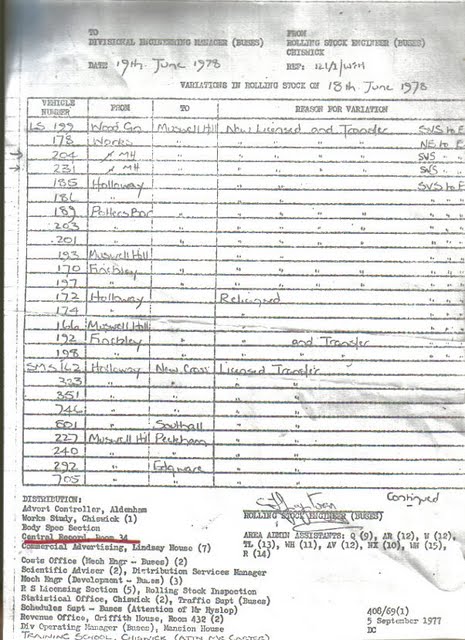 TO FROM
DIVISIONAL ENGINEERING MANAGER (BUSES) ROLLING STOCK ENGINEER (BUSES)
CHISWICK
DATE 19th June 1978 REF: 121/2/WTH
VARIATIONS IN ROLLING STOCK ON 18th June 1978
VEHICLE NUMBER FROM TO REASON FOR VARIATION
LS 199 Wood Gn Muswell Hill New Licensed and Transfer SVS to E
178 Works " " " " NE to E
204 " MH " " " " SVS "
231 " MH " " " " SVS "
185 Holloway " " " " SVS to E
186 " " " " " " " "
189 Potters Bar " " " " " " "
203 " " " " " " " "
201 " " " " " " " "
193 Muswell Hill " " " " "
170 Finchley " " " " " " "
197 " " " " " " " "
172 Holloway Relicensed " " "
174 " " " " "
166 Muswell Hill " " " "
192 Finchley " " and Transfer " " "
198 " " " " " " " "
SMS 162 Holloway New Cross Licensed Transfer
323 " " " "
351 " " " "
746 " " " "
801 " Southall " "
227 Muswell Hill Peckham " "
240 " " " "
292 " Edgware " "
705 " " " "
Continued
DISTRIBUTION:
Advert Controller, Aldenham
Works Study, Chiswick (1)
Body Spec Section
Central Record, Room 34
Commercial Advertising, Lindsay House (7)
Costs Office (Mech Engr - Buses) (2)
Scientific Adviser (2), Distribution Services Manager
Mech Engr (Development - Buses) (3)
R S Licensing Section (5), Rolling Stock Inspection
Statistical Office, Chiswick (2), Traffic Supt (Buses)
Schedules Supt - Buses (Attention of Mr Hyslop)
Revenue Office, Griffith House, Room 432 (2)
Div Operating Manager (Buses), Mansion House
TRAINING SCHOOL, CHISWICK
ROLLING STOCK ENGINEER (BUSES)
AREA ADMIN ASSISTANTS: Q (9), AR (12), W (12),
TL (13), WH (11), AV (12), NX (10), MH (15),
R (14)
408/69(1)
5 September 1977
DC